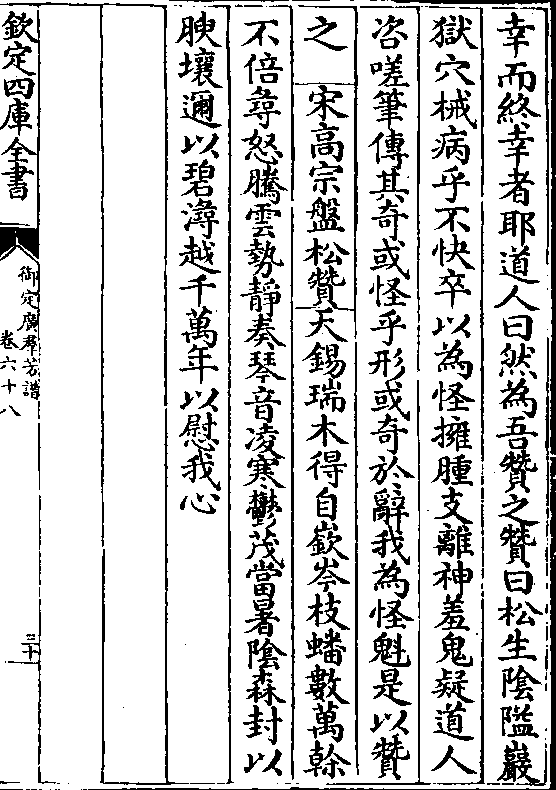 幸而終幸者耶道人曰然為吾贊之贊曰松生陰隘巖
獄穴械病乎不快卒以為怪擁腫支離神羞鬼疑道人
咨嗟筆傳其奇或怪乎形或奇於辭我為怪魁是以贊
之　宋高宗盤松贊天錫瑞木得自嶔岑枝蟠數萬榦
不倍尋怒騰雲勢靜奏琴音凌寒鬱茂當暑陰森封以
腴壤邇以碧潯越千萬年以慰我心
欽定四庫全書
御定廣羣芳譜
卷六十八
三十